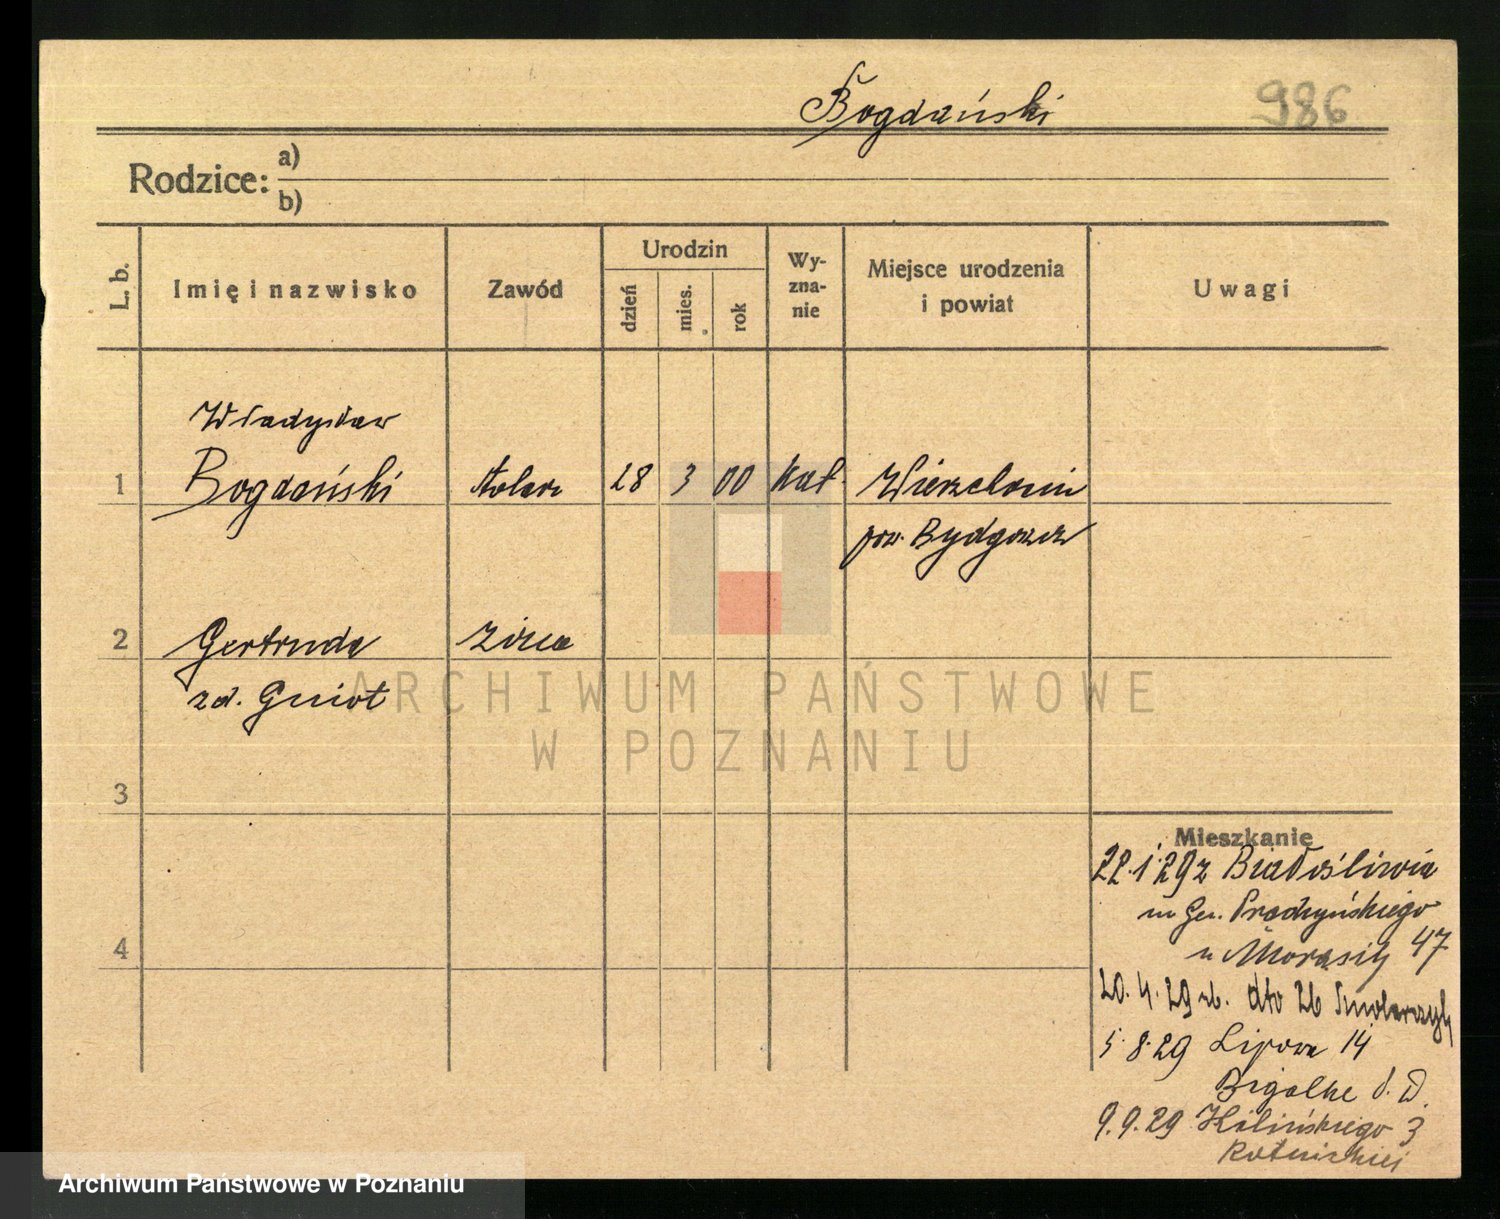 Bogdański 986
Rodzice: a)
b)
L. b. Imię i nazwisko Zawód Urodzin dzień mies. rok Wy-zna-nie Miejsce urodzenia i powiat Uwagi
Władysław
1 Bogdański stolarz 28 3 00 kat. Wierzchucin
pow. Bydgoszcz
2 Gertruda żona
zd. Gniot
ARCHIWUM PAŃSTWOWE
W POZNANIU
3
Mieszkanie
22.1.29 z Białośliwia
Gen. Prądzyńskiego
u 47
4
20.4.29 dto 26
5.8.29 Lipowa 14
Bigalke
9.9.29 Kilińskiego 3
Archiwum Państwowe w Poznaniu